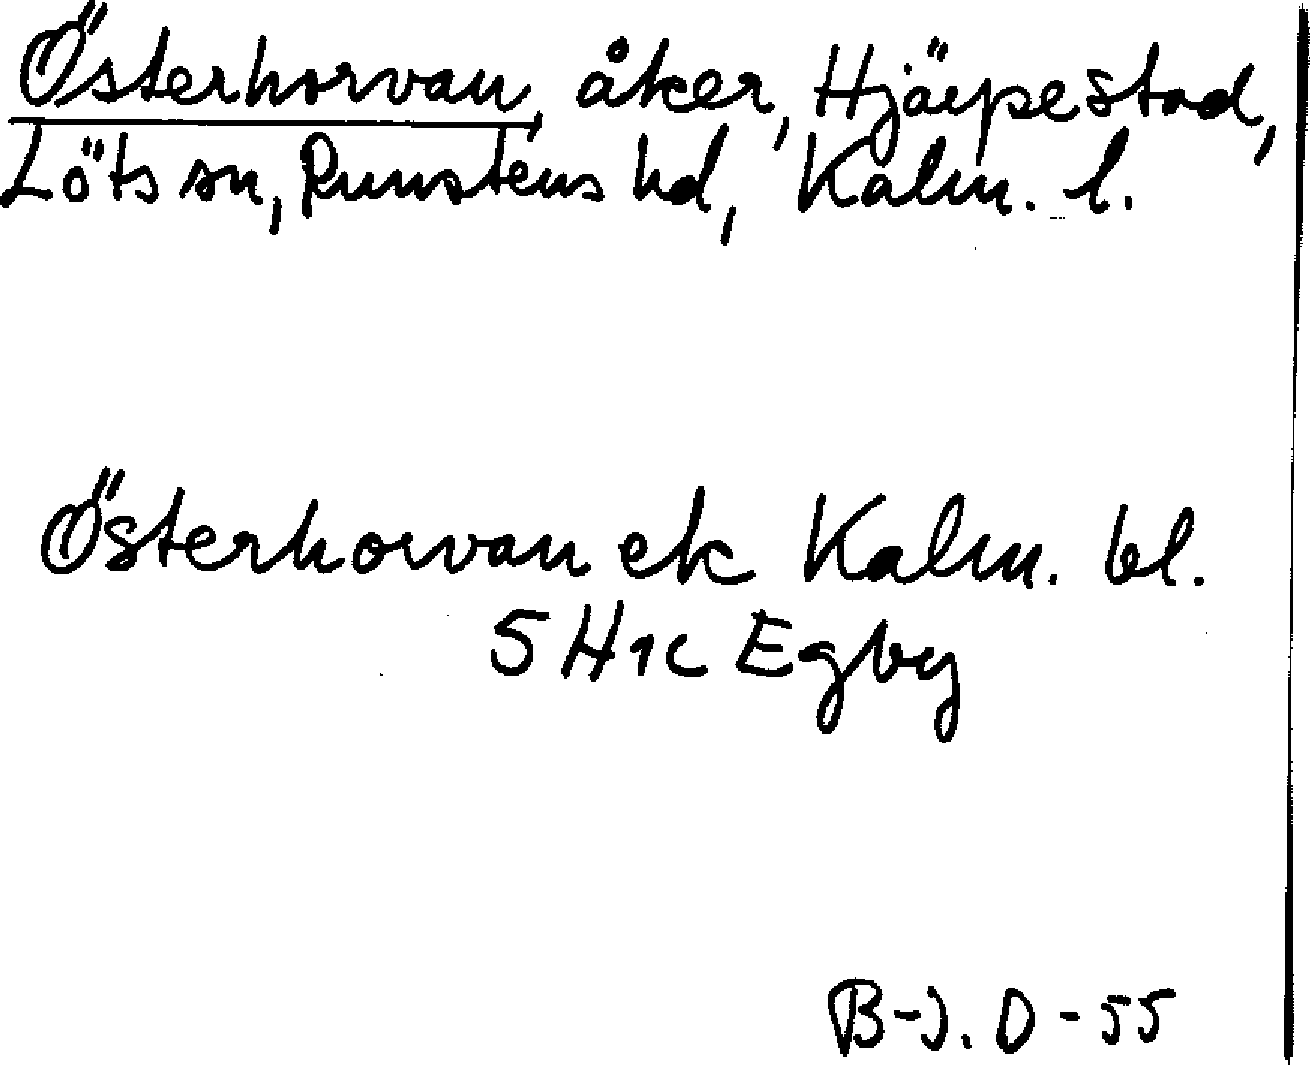 Österhorvan, åker, Hjärpestad,
Löts sn, Runstens hd, Kalm. l.
Österhorvan ek Kalm. bl.
5H1c Egby
B-J. O -55